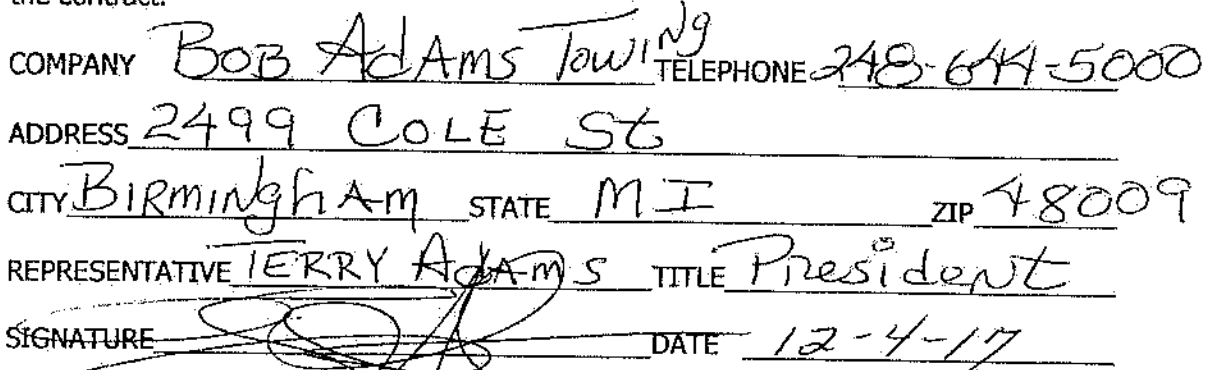 the contract.
COMPANY BOB AdAms TowiNg TELEPHONE 248-644-5000
ADDRESS 2499 COLE St
CITY BIRmiNghAm STATE MI ZIP 48009
REPRESENTATIVE TERRY AdAmS TITLE PresideNt
SIGNATURE DATE 12-4-17